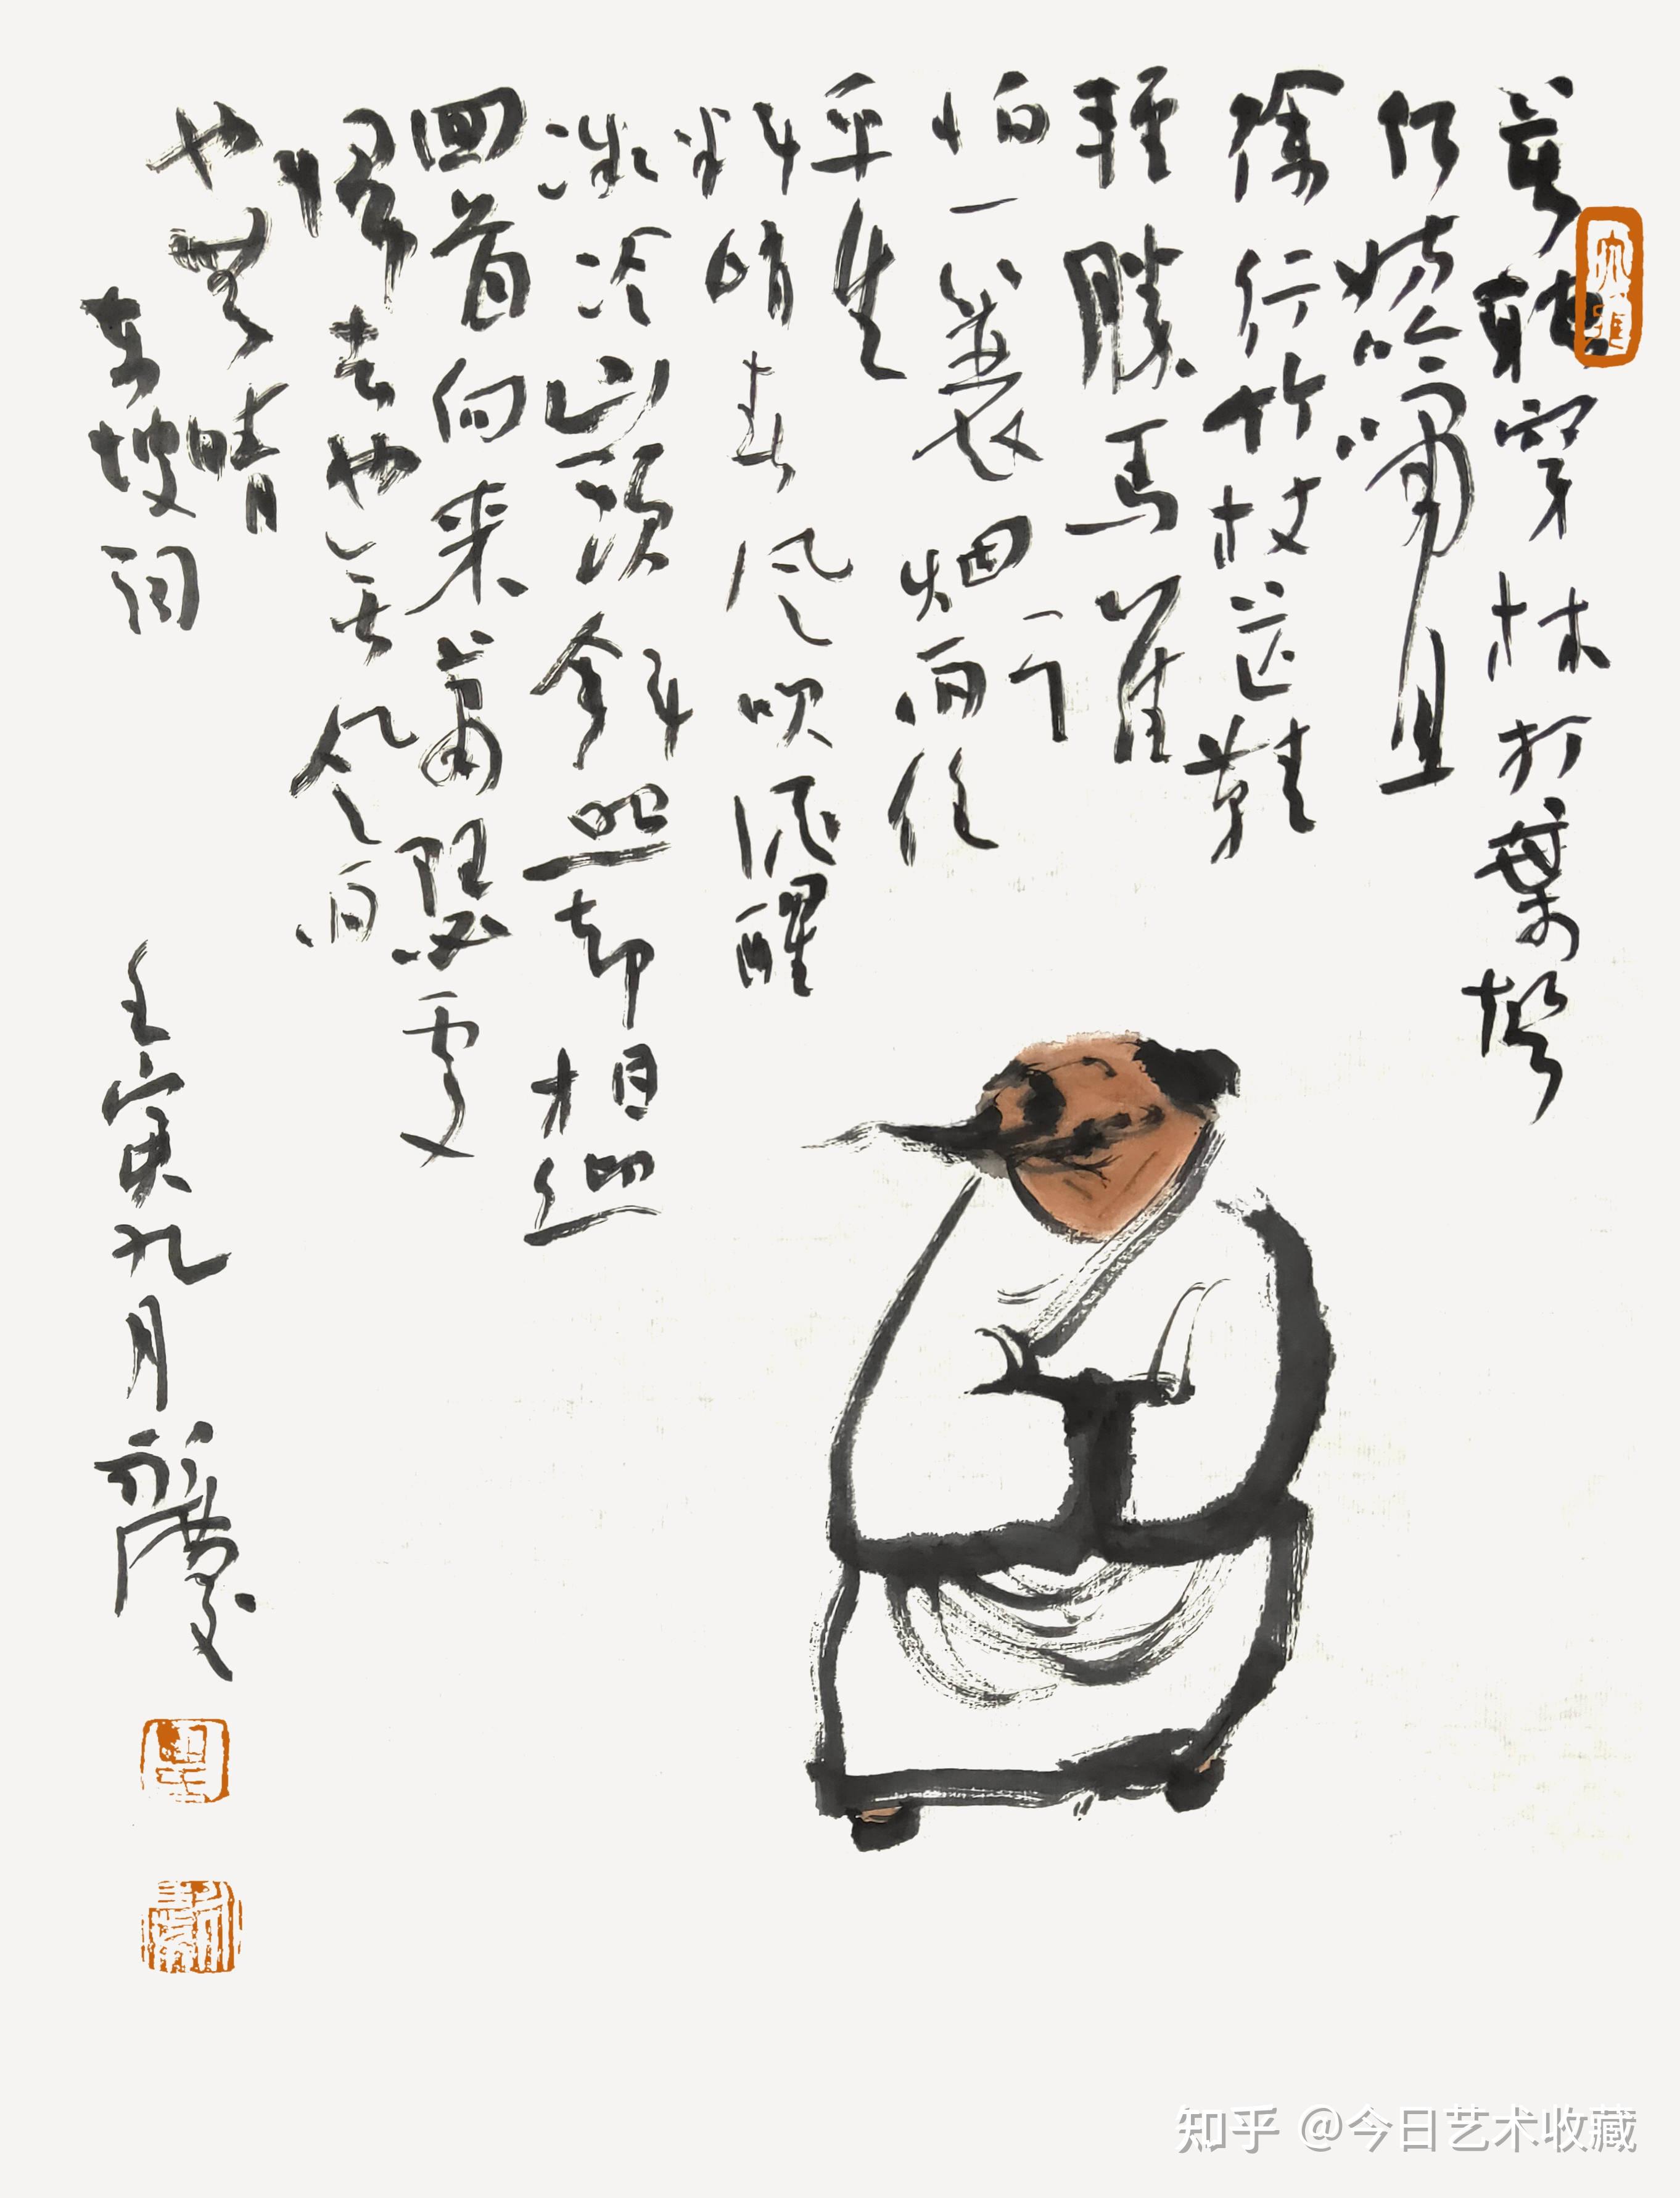 莫聽穿林打葉聲
何妨吟嘯且
徐行竹杖芒鞋
輕勝馬誰
怕一蓑烟雨任
平生
料峭春风吹酒醒
微冷山頭斜照却相迎
回首向来蕭瑟處
歸去也无风雨
也無晴
东坡词
壬寅九月
知乎 @今日艺术收藏